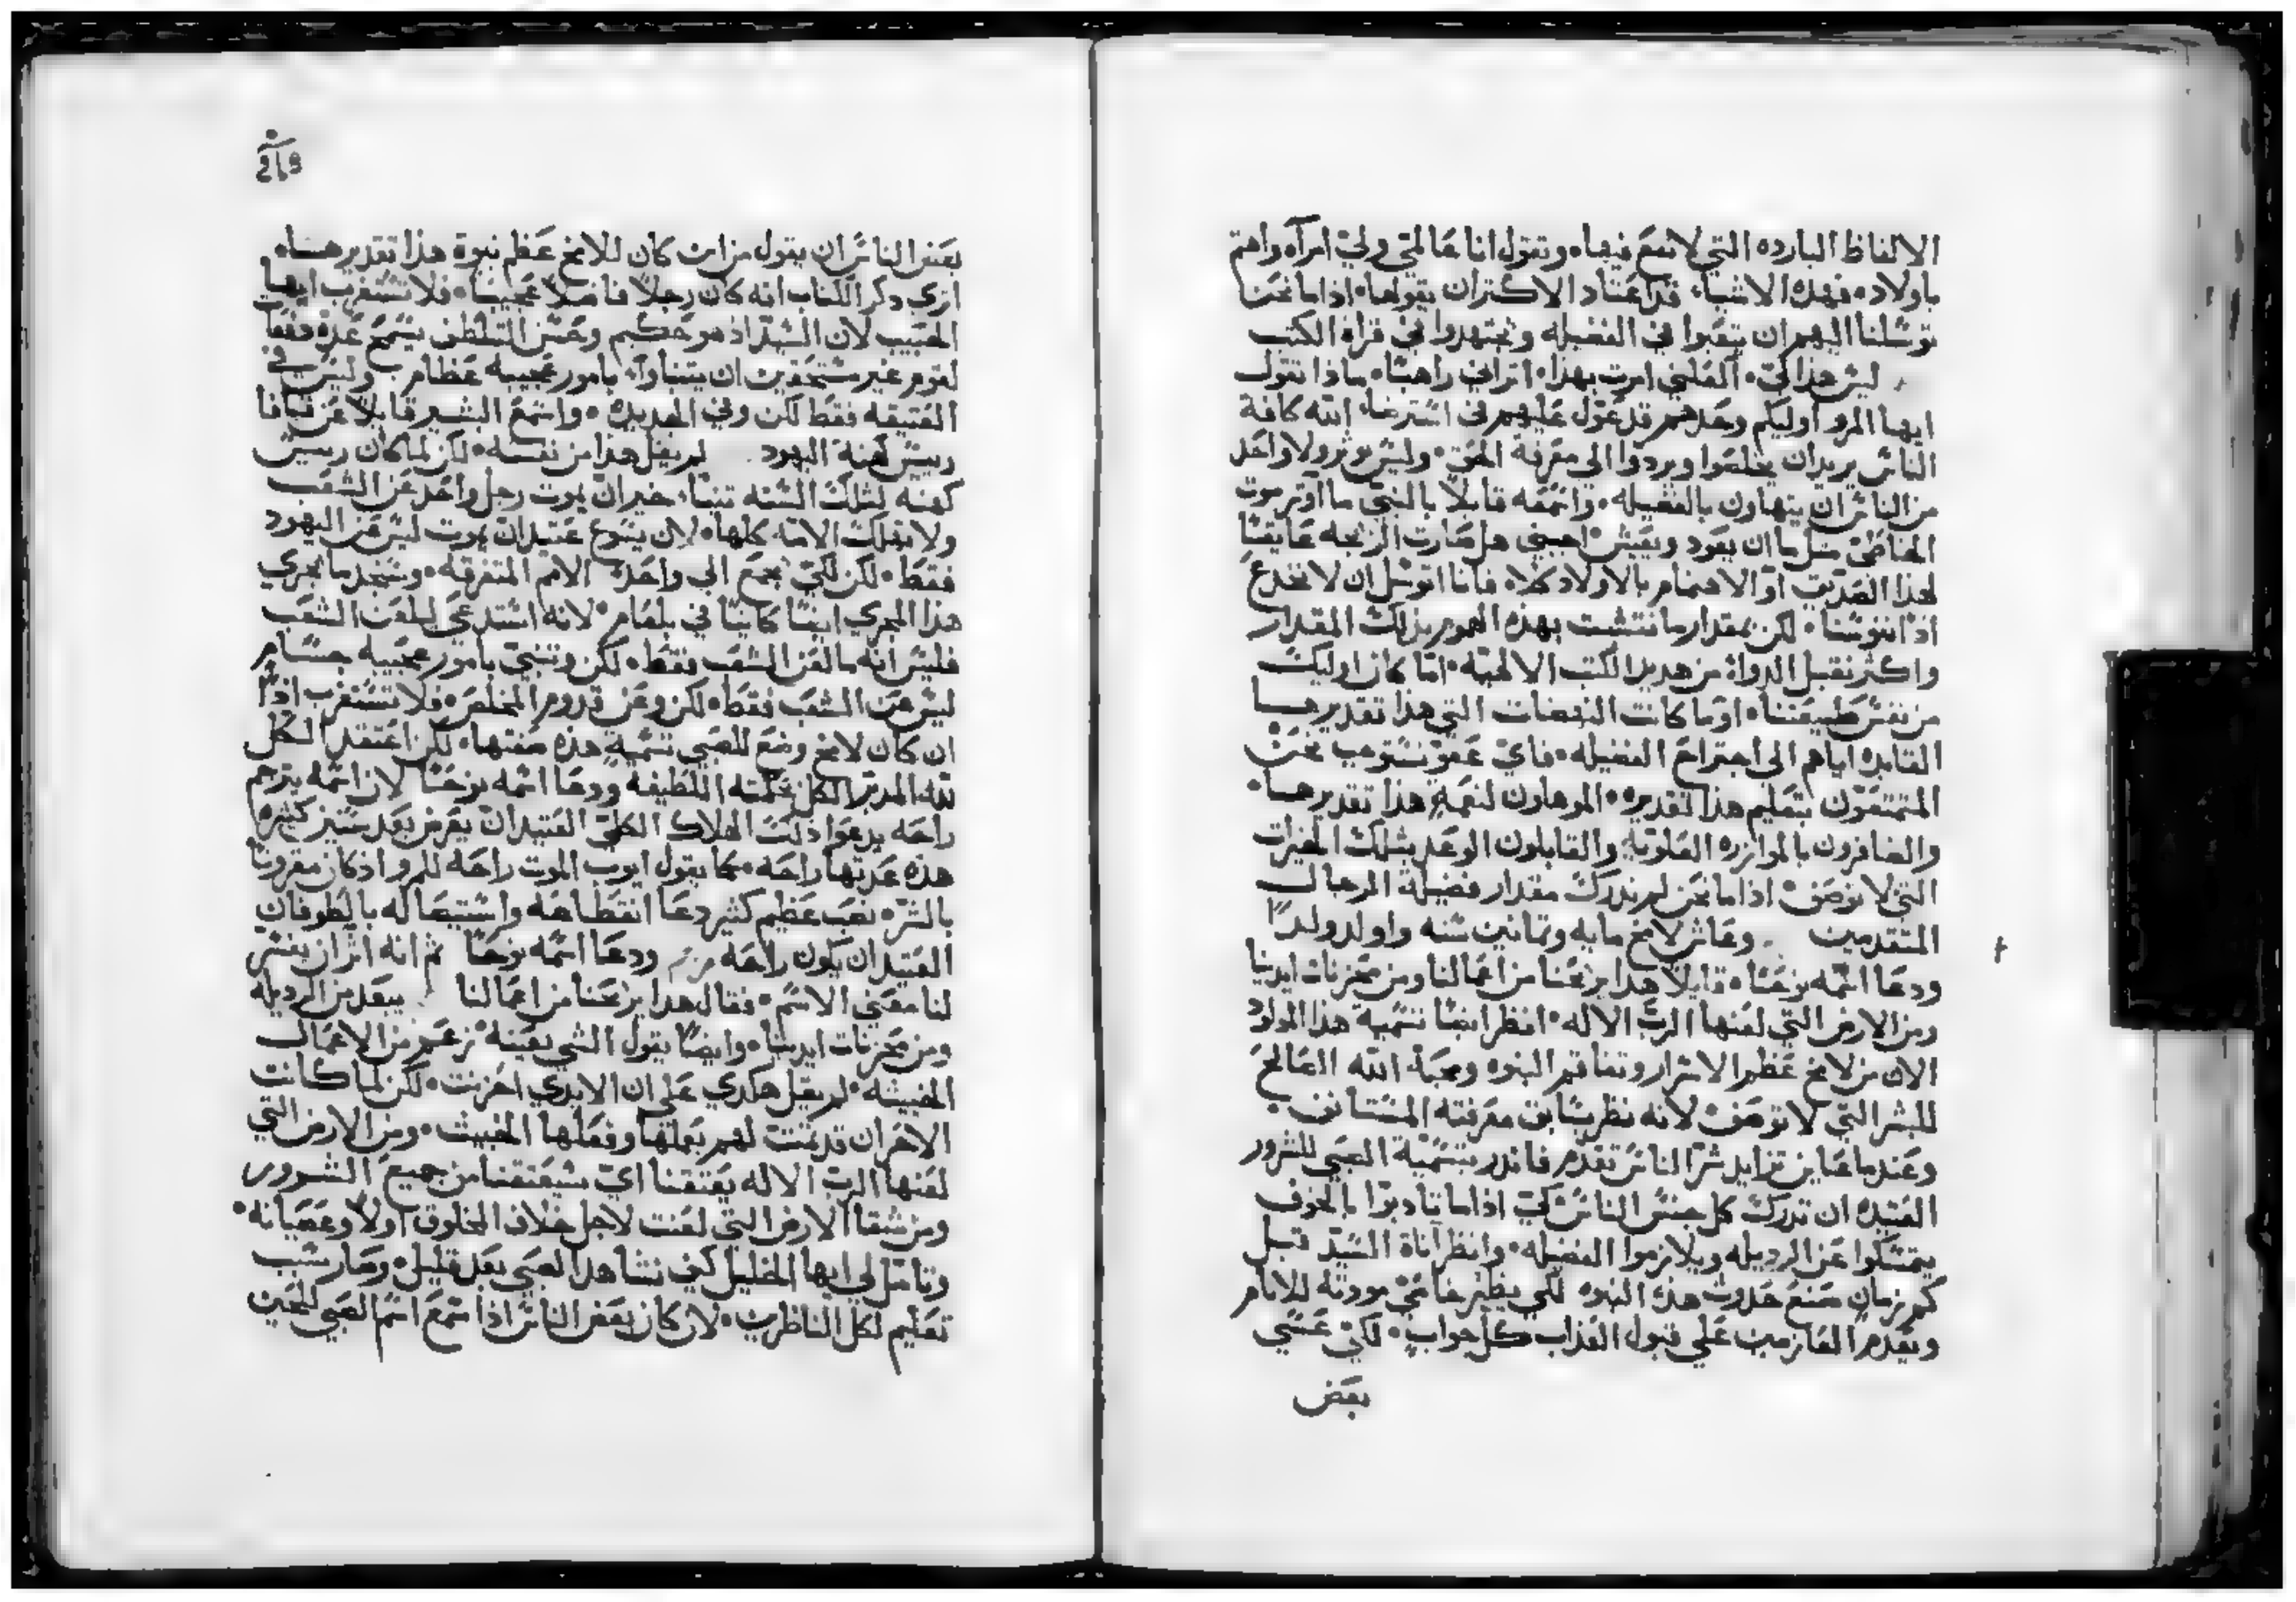 الالفاظ البارده التي لا نفع فيها، وتقول انا عالمي ولي امرآه واهتم
باولاد، فهذه الاشيا، قد اعتاد الاكثران يقولها، اذا ما نحن
توسلنا اليهم ان يتعبوا في الفضيله ويجتهدوا في قراة الكتب
ليس هذا لي، العلني امرت بهذا، اتراني راهبًا، ماذا تقول
ايها المرو اوليكم وحدهم قد عول عليهم في استرضا، الله كافة
الناس يريد ان يخلصوا ويردوا الى معرفة الحق، وليس يوثر ولا واحد
من الناس ان يتهاون بالفضيله، واسمعه قايلا بالنبي ما آوثر موت
الخاطي مثل ما ان يعود ويعيش، اجبني هل صارت الزيجه عايقًا
لهذا الصديق او الاهتمام بالاولاد كلا، فانا اتوسل ان لا نخدع
اذا نفوسنا، لكن بمقدار ما نتشبث بهذه الهموم بذلك المقدار
واكثر نقبل الدواء من هديد الكتب الالهيه، اما كان اوليك
من نفس طبيعتنا، او ما كانت النهضات التي هذا تقديرها
القايده اياهم الى اجتراح الفضيله، فاي عفو نستوجب نحن
المتمتعون بتعليم هذا تقديره، الموهلون لنعمةٍ هذا تقديرها،
والظافرون بالموازره العلويه والقابلون الوعد بتلك الخيرات
التي لا توصف، اذا ما نحن لم ندرك مقدار فضيلة الرجال
المتقدمين . وعاش لامخ مايه وثمانين سنه واولد ولدًا
ودعا اسمه نوحًا، قايلًا هدا يريحنا من اعمالنا ومن محزنات ايدينا
ومن الارض التي لعنها الرب الاله، انظر ايضًا تسمية هذا المولود
الان من لامخ عظم الاسرار وتفاقم النبوه ومحبة الله الصالح
للبشر التي لا توصف، لانه نظر بسابق معرفته المستانف
وعندما عاين تزايد شر الناس تقدم فانذر بتسمية الصبي للشرور
العتيده ان تدرك كل جنس الناس، كي اذا ما تادبوا بالخوف
يمتسكوا عن الرديله ويلازموا الفضيله، وانظر اناة السيد قبل
كم زمان صنع حدوث هذه النبوه لكي يظهر خاصي مودته للانام
ويعدم العازمين على قبول العذاب كل جواب، لكن عسى
بعض
بعض الناس ان يقول من اين كان للامخ عظم نبوة هذا تقديرها،
اترى ذكر الكتاب انه كان رجلًا فاضلًا عجيبًا، فلا تستغرب ايها
الحبيب لان السيد اذ هو حكيم وحسن التلطف يسمح عدة دفعًا
لقوم غير مستحقين ان يتنباوا، بامور عجيبه عظام، وليس في
العتيقه فقط لكن وفي الجديده، واسمع البشير قايلًا عن قيافا
رييس كهنة اليهود . لم يقل هذا من نفسه، لكن لما كان رييس
كهنه لتلك السنه تنبا، خير ان يموت رجل واحد عن الشعب
ولا تهلك الامه كلها، لان يسوع عتيد ان يموت ليس عن اليهود
فقط، لكن لكي يجمع الى واحد، الامم المتفرقه، وستجد ما يجري
هذا المجرى ايضًا كاينًا في بلعام، لانه استدعي ليلعن الشعب
فليس انه ما لعن الشعب فقط، لكن وتنبى بامور عجيبه جسام
ليس عن الشعب فقط، لكن وعن قدوم المخلص، فلا تستغرب اذًا
ان كان لامخ وضع للصبي تسميةٍ هذه صفتها، لكن اعتقد الكل
لله المدبر الكل بحكمته اللطيفه ودعا اسمه نوحًا لان اسمه يترجم
راحه يدعوا ذلك الهلاك الكلي العتيد ان يعرض بعد سنين كثيره
هذه عدتها راحه، كما يقول ايوب الموت راحه للمرو اذ كان مقرونًا
بالشره تعب عظيم كثير دعا انقطاعه واستيصاله بالطوفان
العتيد ان يكون راحه ودعا اسمه نوحًا ثم انه اثر ان يفسر
لنا معنى الاسم، فقال هدا يريحنا من اعمالنا . يبعد من الرديله
ومن محزنات ايدينا، وايضًا يقول الشي بعينه نزعه من الاعمال
الخبيثه، لم يقل هكدى على ان الايدي احزنت، لكن لما كانت
الاحزان قد تمت لهم بعملها وفعلها الخبيث، ومن الارض التي
لعنها الرب الاله يعتقنا اي سيعتقنا من جميع الشرور
ومن شقا الارض التي لعنت لاجل خلاف المخلوق اولًا وعصيانه،
وتامل لي ايها الخليل كيف نشا هدا الصبي بعد قليل، وصار سبب
تعليم لكل الناظرين، لان كان بعض الناس اذا سمع اسم الصبي للحين